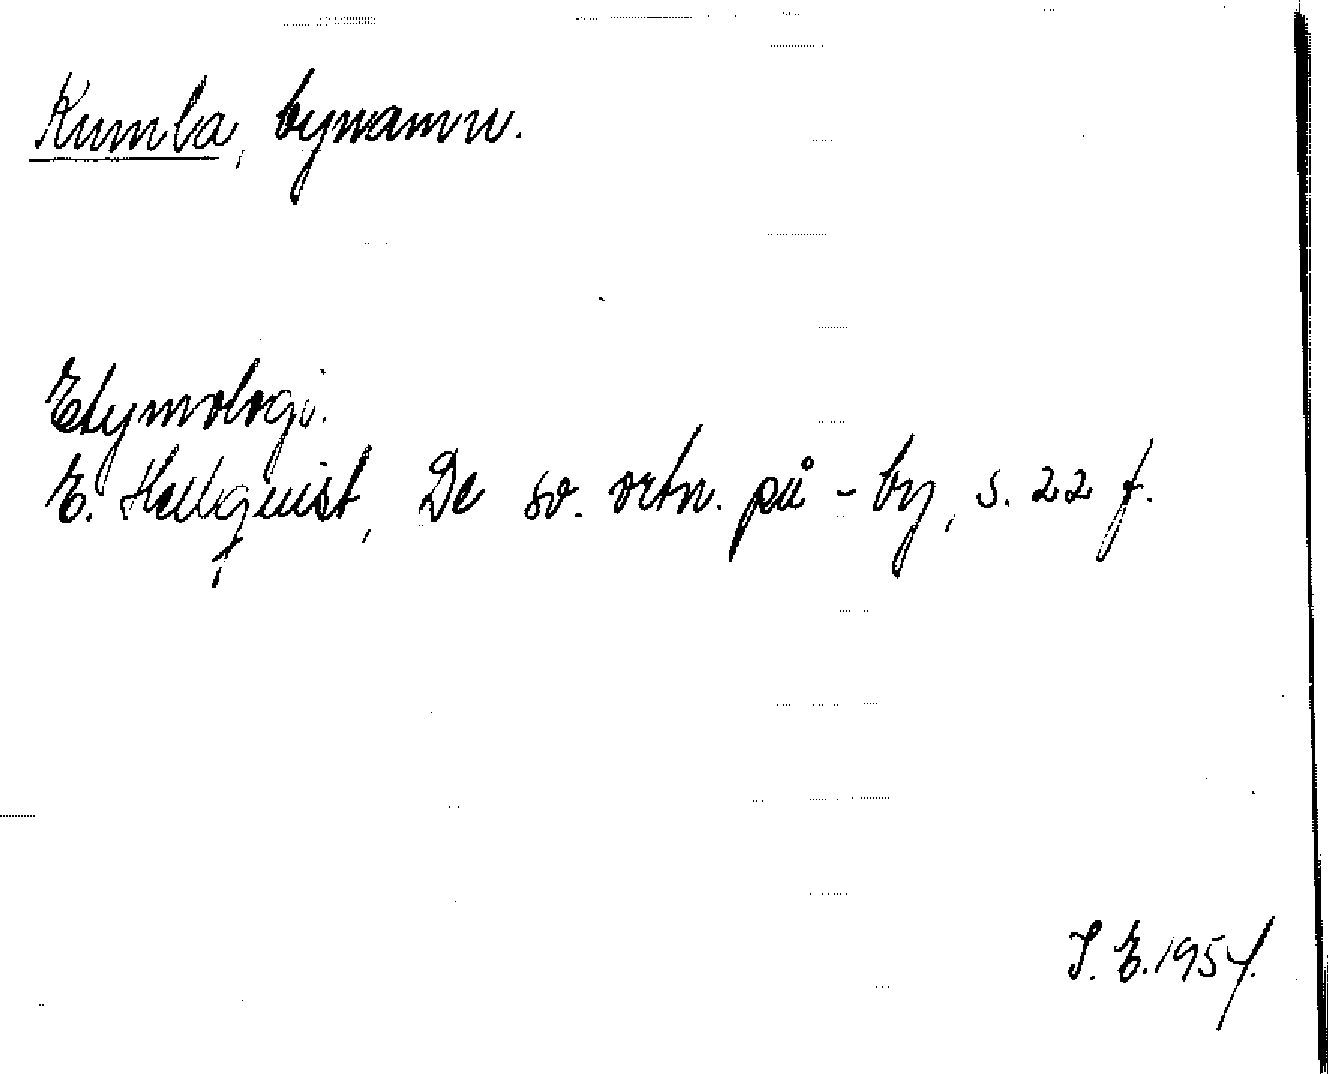 Kumla, bynamn.
Etymologi.
E. Hellquist, De sv. ortn. på -by, s. 22 f.
I. E. 1954.